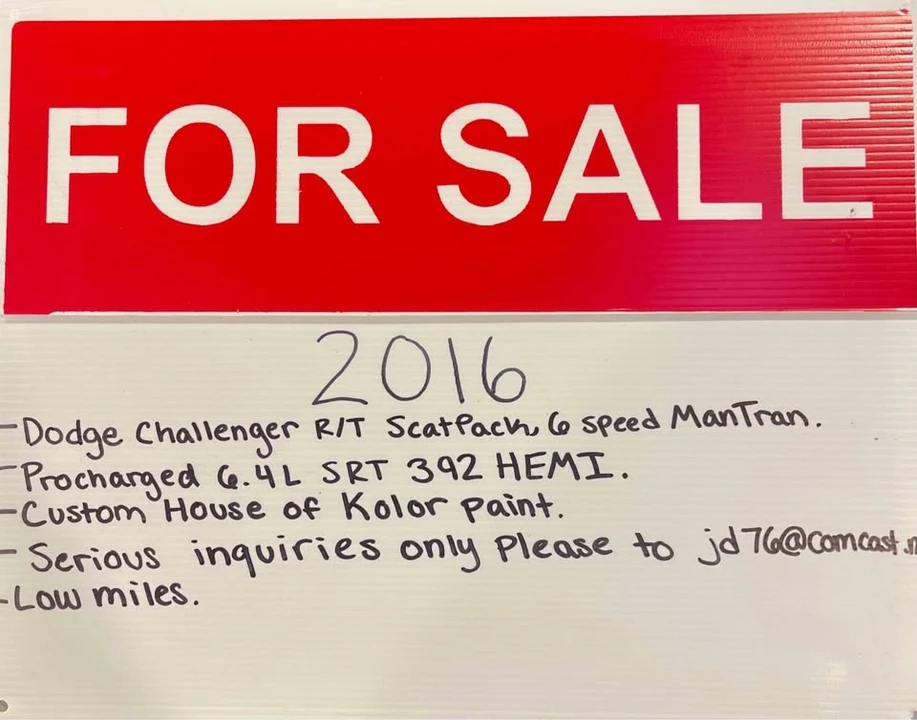 FOR SALE
2016
- Dodge Challenger R/T ScatPack 6 speed ManTran.
- Procharged 6.4L SRT 392 HEMI.
- Custom House of Kolor paint.
- Serious inquiries only Please to jd76@comcast.n
- Low miles.